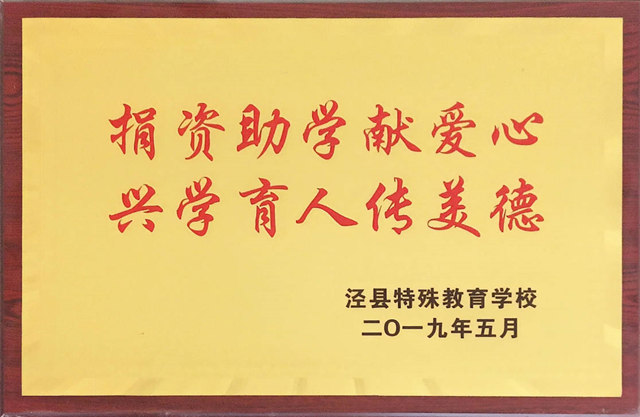 捐资助学献爱心
兴学育人传美德
泾县特殊教育学校
二〇一九年五月